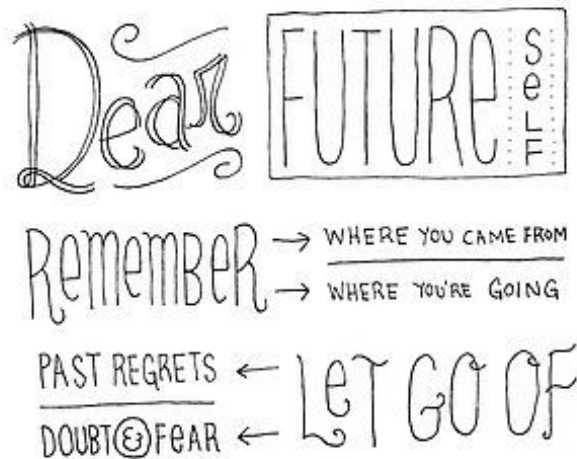 Dear
FUTURe SeLF
ReMeMBeR → WHERE YOU CAME FROM
→ WHERE YOU'RE GOING
LeT GO OF
PAST REGRETS ←
DOUBT & FeAR ←